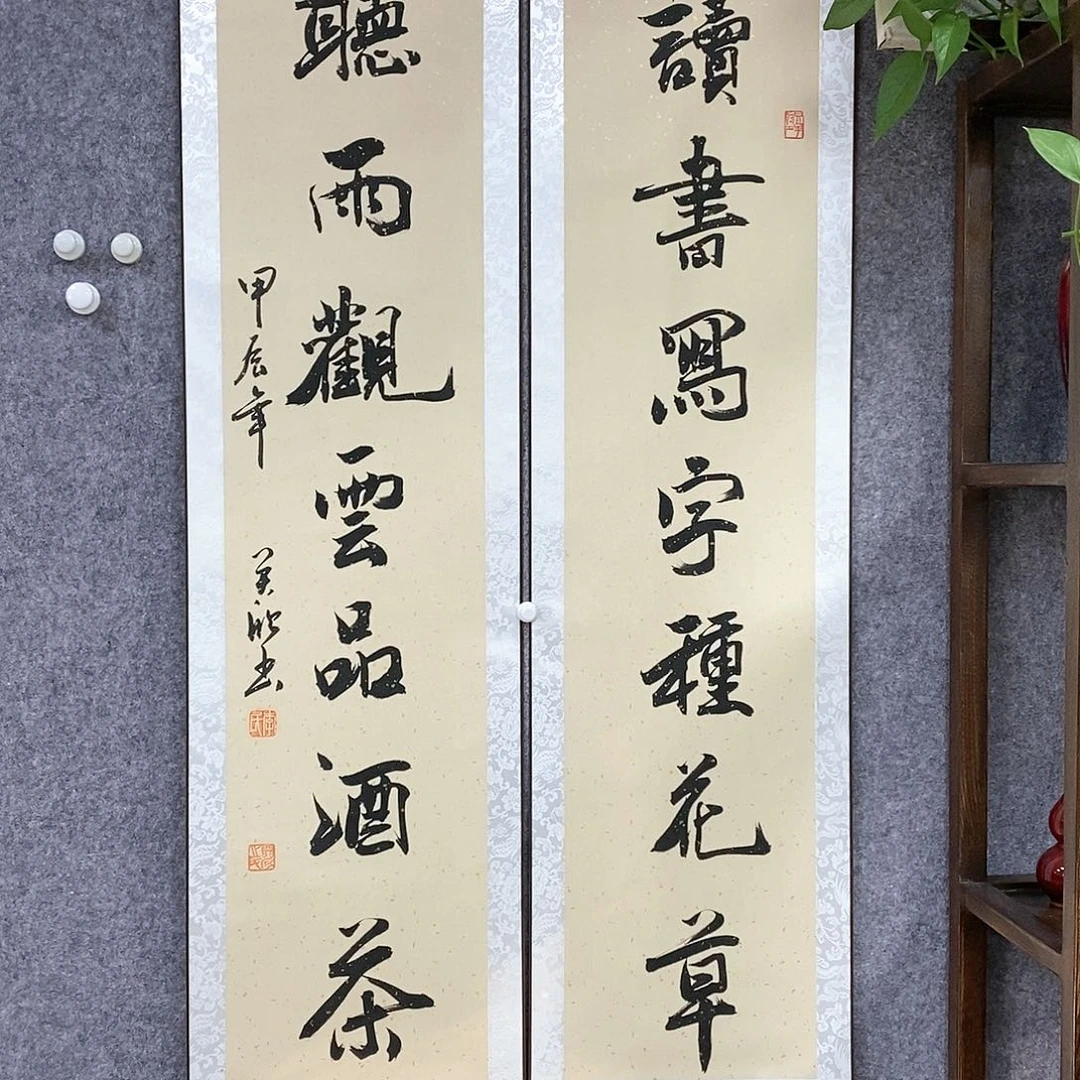 讀書寫字種花草
聽雨觀雲品酒茶
甲辰年
美欣书